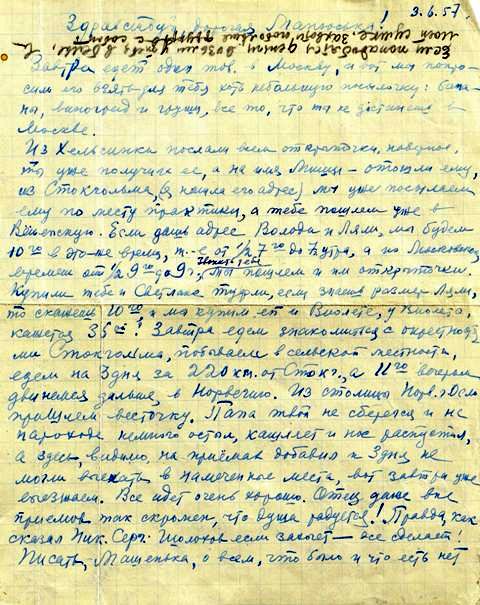 3.6.57.
Здравствуй, дорогая Манюсенька!
Если понадобятся деньги, возьми у меня в белье, в
Завтра едет один тов. в Москву, и вот мы попро-
сили его взять для тебя хоть небольшую посылочку: бана-
ны, виноград и груши, все то, что ты не достанешь в
Москве.
Из Хельсинки послали всем открыточки, наверное,
ты уже получила ее, а на имя Миши - отошли ему,
из Стокгольма, (я нашла его адрес) мы уже посылаем
ему по месту практики, а тебе пошлем уже в
Вёшенскую. Если дашь адрес Володи и Ляли, мы будем
10го в это же время, т.-е от 1/2 7го до 7 утра, а по Московскому
времени от 1/2 9го до 9 г. звонить тебе, мы пошлем и им открыточки.
Купили тебе и Светлане туфли, если знаешь размер Ляли,
то скажешь 10го, и мы купим ей и Виолете, у Виолета,
кажется 35й? Завтра едем знакомиться с окрестностя-
ми Стокгольма, побываем в сельской местности,
едем на 3 дня за 220 км. от Стокг., а 11го вечером
двинемся дальше, в Норвегию. Из столицы Норв. Осло
пришлем весточку. Папа твой не сберегся и на
пароходе немного остыл, кашляет и нос распустил,
а здесь, видимо, на приёмах добавил и 3 дня не
могли выехать в намеченные места, вот завтра уже
выезжаем. Все идет очень хорошо. Отец даже вне
приёмов так скромен, что душа радуется! Правда, как
сказал Ник. Серг: Шолохов если захочет - все сделает!
Писать, Машенька, о всем, что было и что есть нет